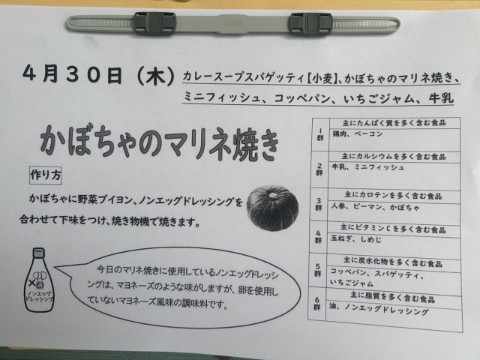 ４月３０日（木） カレースープスパゲッティ【小麦】、かぼちゃのマリネ焼き、
ミニフィッシュ、コッペパン、いちごジャム、牛乳
かぼちゃのマリネ焼き
作り方
かぼちゃに野菜ブイヨン、ノンエッグドレッシングを
合わせて下味をつけ、焼き物機で焼きます。
ノンエッグ
ドレッシング
今日のマリネ焼きに使用しているノンエッグドレッシ
ングは、マヨネーズのような味がしますが、卵を使用し
ていないマヨネーズ風味の調味料です。
１群
主にたんぱく質を多く含む食品
鶏肉、ベーコン
２群
主にカルシウムを多く含む食品
牛乳、ミニフィッシュ
３群
主にカロテンを多く含む食品
人参、ピーマン、かぼちゃ
４群
主にビタミンCを多く含む食品
玉ねぎ、しめじ
５群
主に炭水化物を多く含む食品
コッペパン、スパゲッティ、
いちごジャム
６群
主に脂質を多く含む食品
油、ノンエッグドレッシング